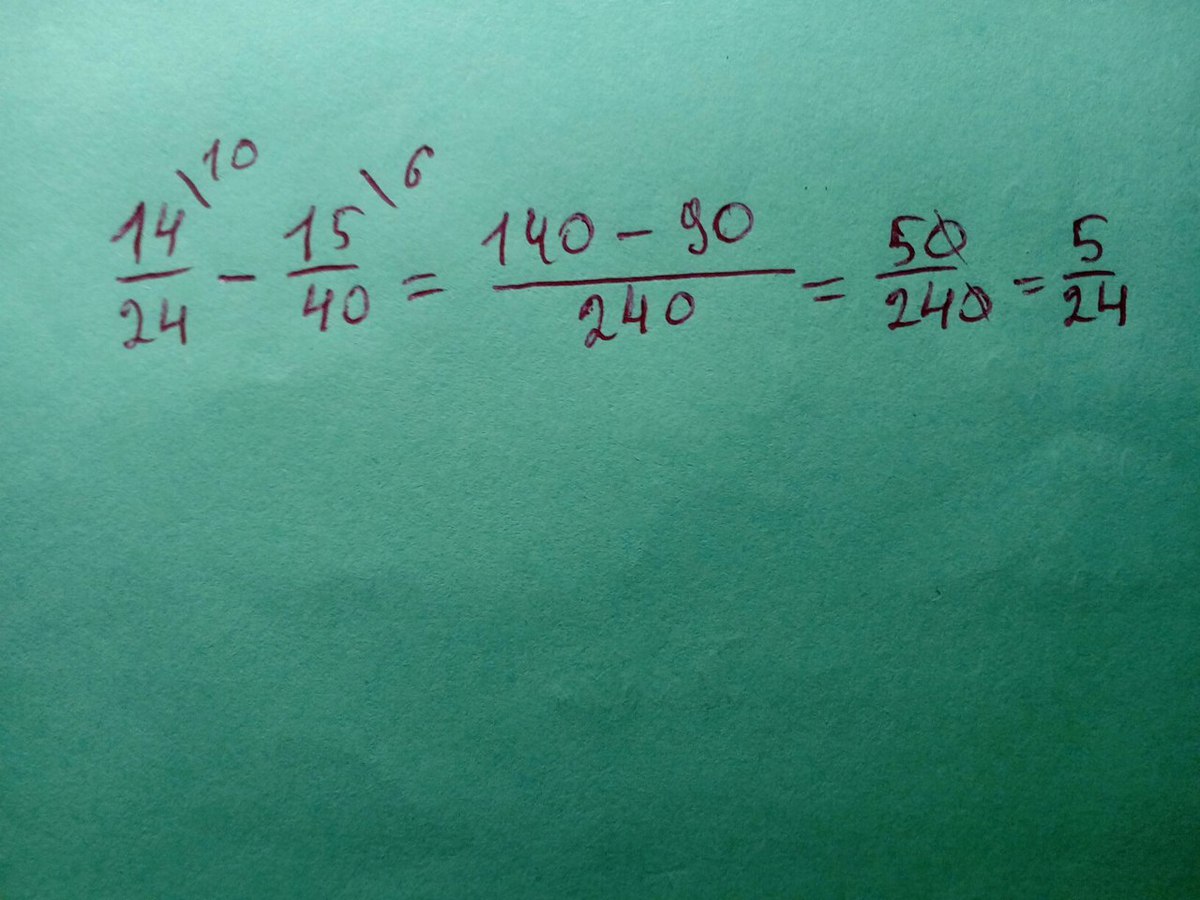 14/24 \10 − 15/40 \6 = 140 − 90/240 = 50/240 = 5/24